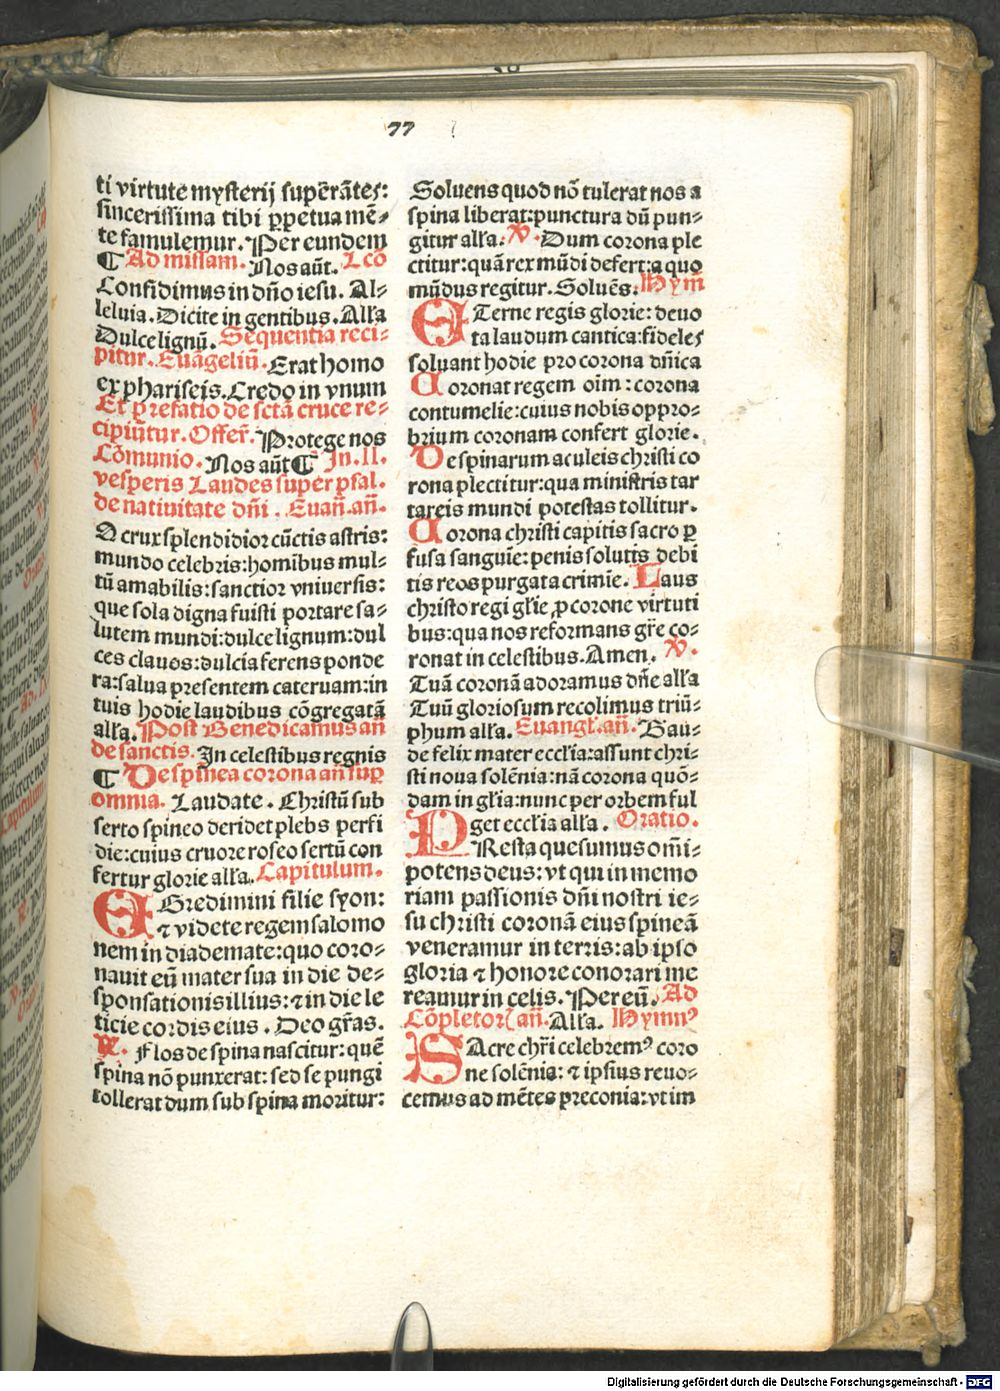 77
ti virtute mysterij supērātes:
sincerissima tibi ꝑpetua mē-
te famulemur. Per eundem
¶ Ad missam. Nos aūt. Lcō
Confidimus in dn̄o iesu. Al-
leluia. Dicite in gentibus. Alľa
Dulce lignū. Sequentia reci-
pitur. Euāgeliū. Erat homo
ex phariseis. Credo in vnum
Et p̄refatio de sctā cruce re-
cipiūtur. Offer̄. Protege nos
Cōmunio. Nos aūt ¶ In .II.
vesperis Laudes super psal.
de nativitate dn̄i . Euan̄. an̄.
O crux splendidior cūctis astris:
mundo celebris: homibus mul-
tū amabilis: sanctior vniuersis:
que sola digna fuisti portare sa-
lutem mundi: dulce lignum: dul
ces clauos: dulcia ferens ponde
ra: salua presentem cateruam: in
tuis hodie laudibus cōgregatā
alľa. Post Benedicamus an̄
de sanctis. In celestibus regnis
¶ De spinea corona an̄ suꝑ
omnia. Laudate . Christū sub
serto spineo deridet plebs perfi
die: cuius cruore roseo sertū con
fertur glorie alľa. Capitulum.
EGredimini filie syon:
⁊ videte regem salomo
nem in diademate: quo coro-
nauit eū mater sua in die de-
sponsationis illius: ⁊ in die le
ticie cordis eius . Deo gr̄as.
℟. Flos de spina nascitur: quē
spina nō punxerat: sed se pungi
tollerat dum sub spina moritur:
Soluens quod nō tulerat nos a
spina liberat: punctura dū pun-
gitur alľa. ℣. Dum corona ple
ctitur: quā rex mūdi defert: a quo
mūdus regitur. Soluēs. Hym̄
ETerne regis glorie: deuo
ta laudum cantica: fideles
soluant hodie pro corona dn̄ica
Coronat regem oīm : corona
contumelie: cuius nobis oppro-
brium coronam confert glorie.
De spinarum aculeis christi co
rona plectitur: qua ministris tar
tareis mundi potestas tollitur.
Corona christi capitis sacro ꝑ
fusa sanguīe: penis solutis debi
tis reos purgat a crimīe. Laus
christo regi gľie ꝓ corone virtuti
bus: qua nos reformans gr̄e co-
ronat in celestibus. Amen. ℣.
Tuā coronā adoramus dn̄e alľa
Tuū gloriosum recolimus triū-
phum alľa. Euangľ. an̄. Gau-
de felix mater eccľia: assunt chri-
sti noua solēnia: nā corona quō-
dam in gľia: nunc per orbem ful
get eccľia alľa. Oratio.
PResta quesumus om̄i-
potens deus: vt qui in memo
riam passionis dn̄i nostri ie-
su christi coronā eius spineā
veneramur in terris: ab ipso
gloria ⁊ honore conorari me
reamur in celis. Per eū. Ad
Cōpletoꝝ an̄. Alľa. Hymnꝰ
SAcre chr̄i celebremꝰ coro
ne solēnia: ⁊ ipsius reuo-
cemus ad mētes preconia: vt im
Digitalisierung gefördert durch die Deutsche Forschungsgemeinschaft - DFG